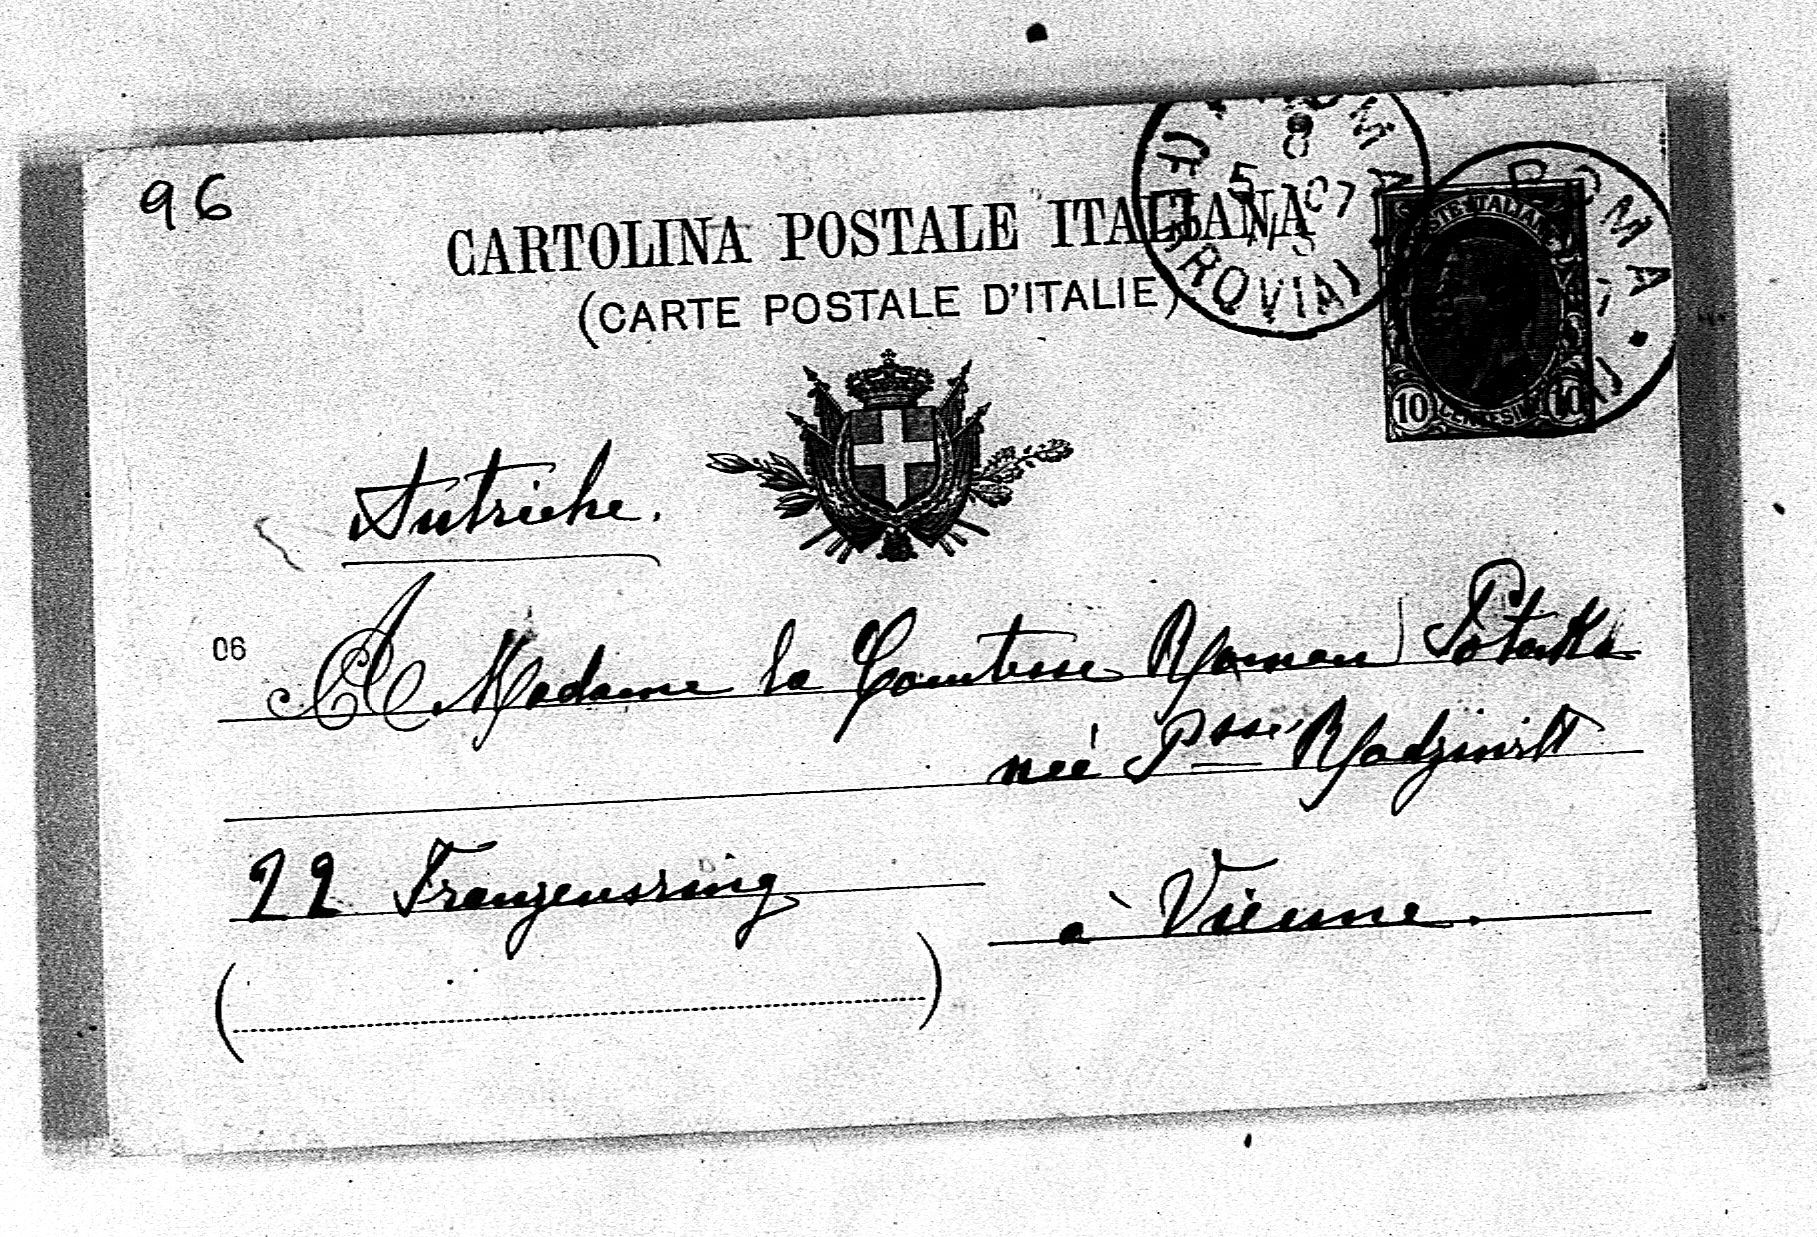 96
CARTOLINA POSTALE ITALIANA
(CARTE POSTALE D'ITALIE)
ROMA
FERROVIA
5
07
ROMA
POSTE ITALIANE
10 CENTESIMI 10
Autriche.
06
A Madame la Comtesse Roman Potocka
née Psse Radziwill
22 Franzensring
à Vienne.